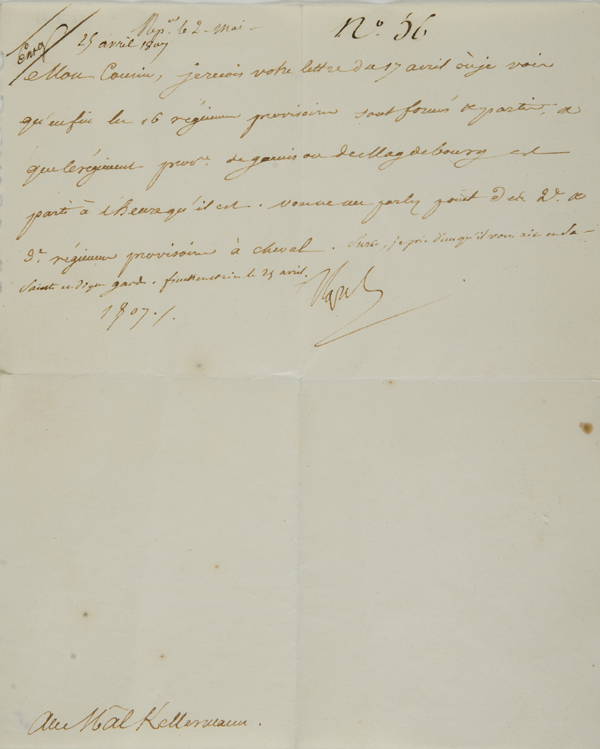 Enrg
Rep.du le 2 Mai
N.o 56
25 avril 1807
Mon Cousin, je reçois votre lettre du 17 avril où je vois
qu'enfin les 16 régimens provisoires sont formés & partis, &
que le régiment prov.re de garnison de Magdebourg est
parti à l'heure qu'il est. vous ne me parlez point des 2.e &
3.e régimens provisoires à cheval. Sur ce, je prie dieu qu'il vous ait en sa
sainte et digne garde. finckenstein le 25 avril
1807./.
Nap
Au M.al Kellermann.